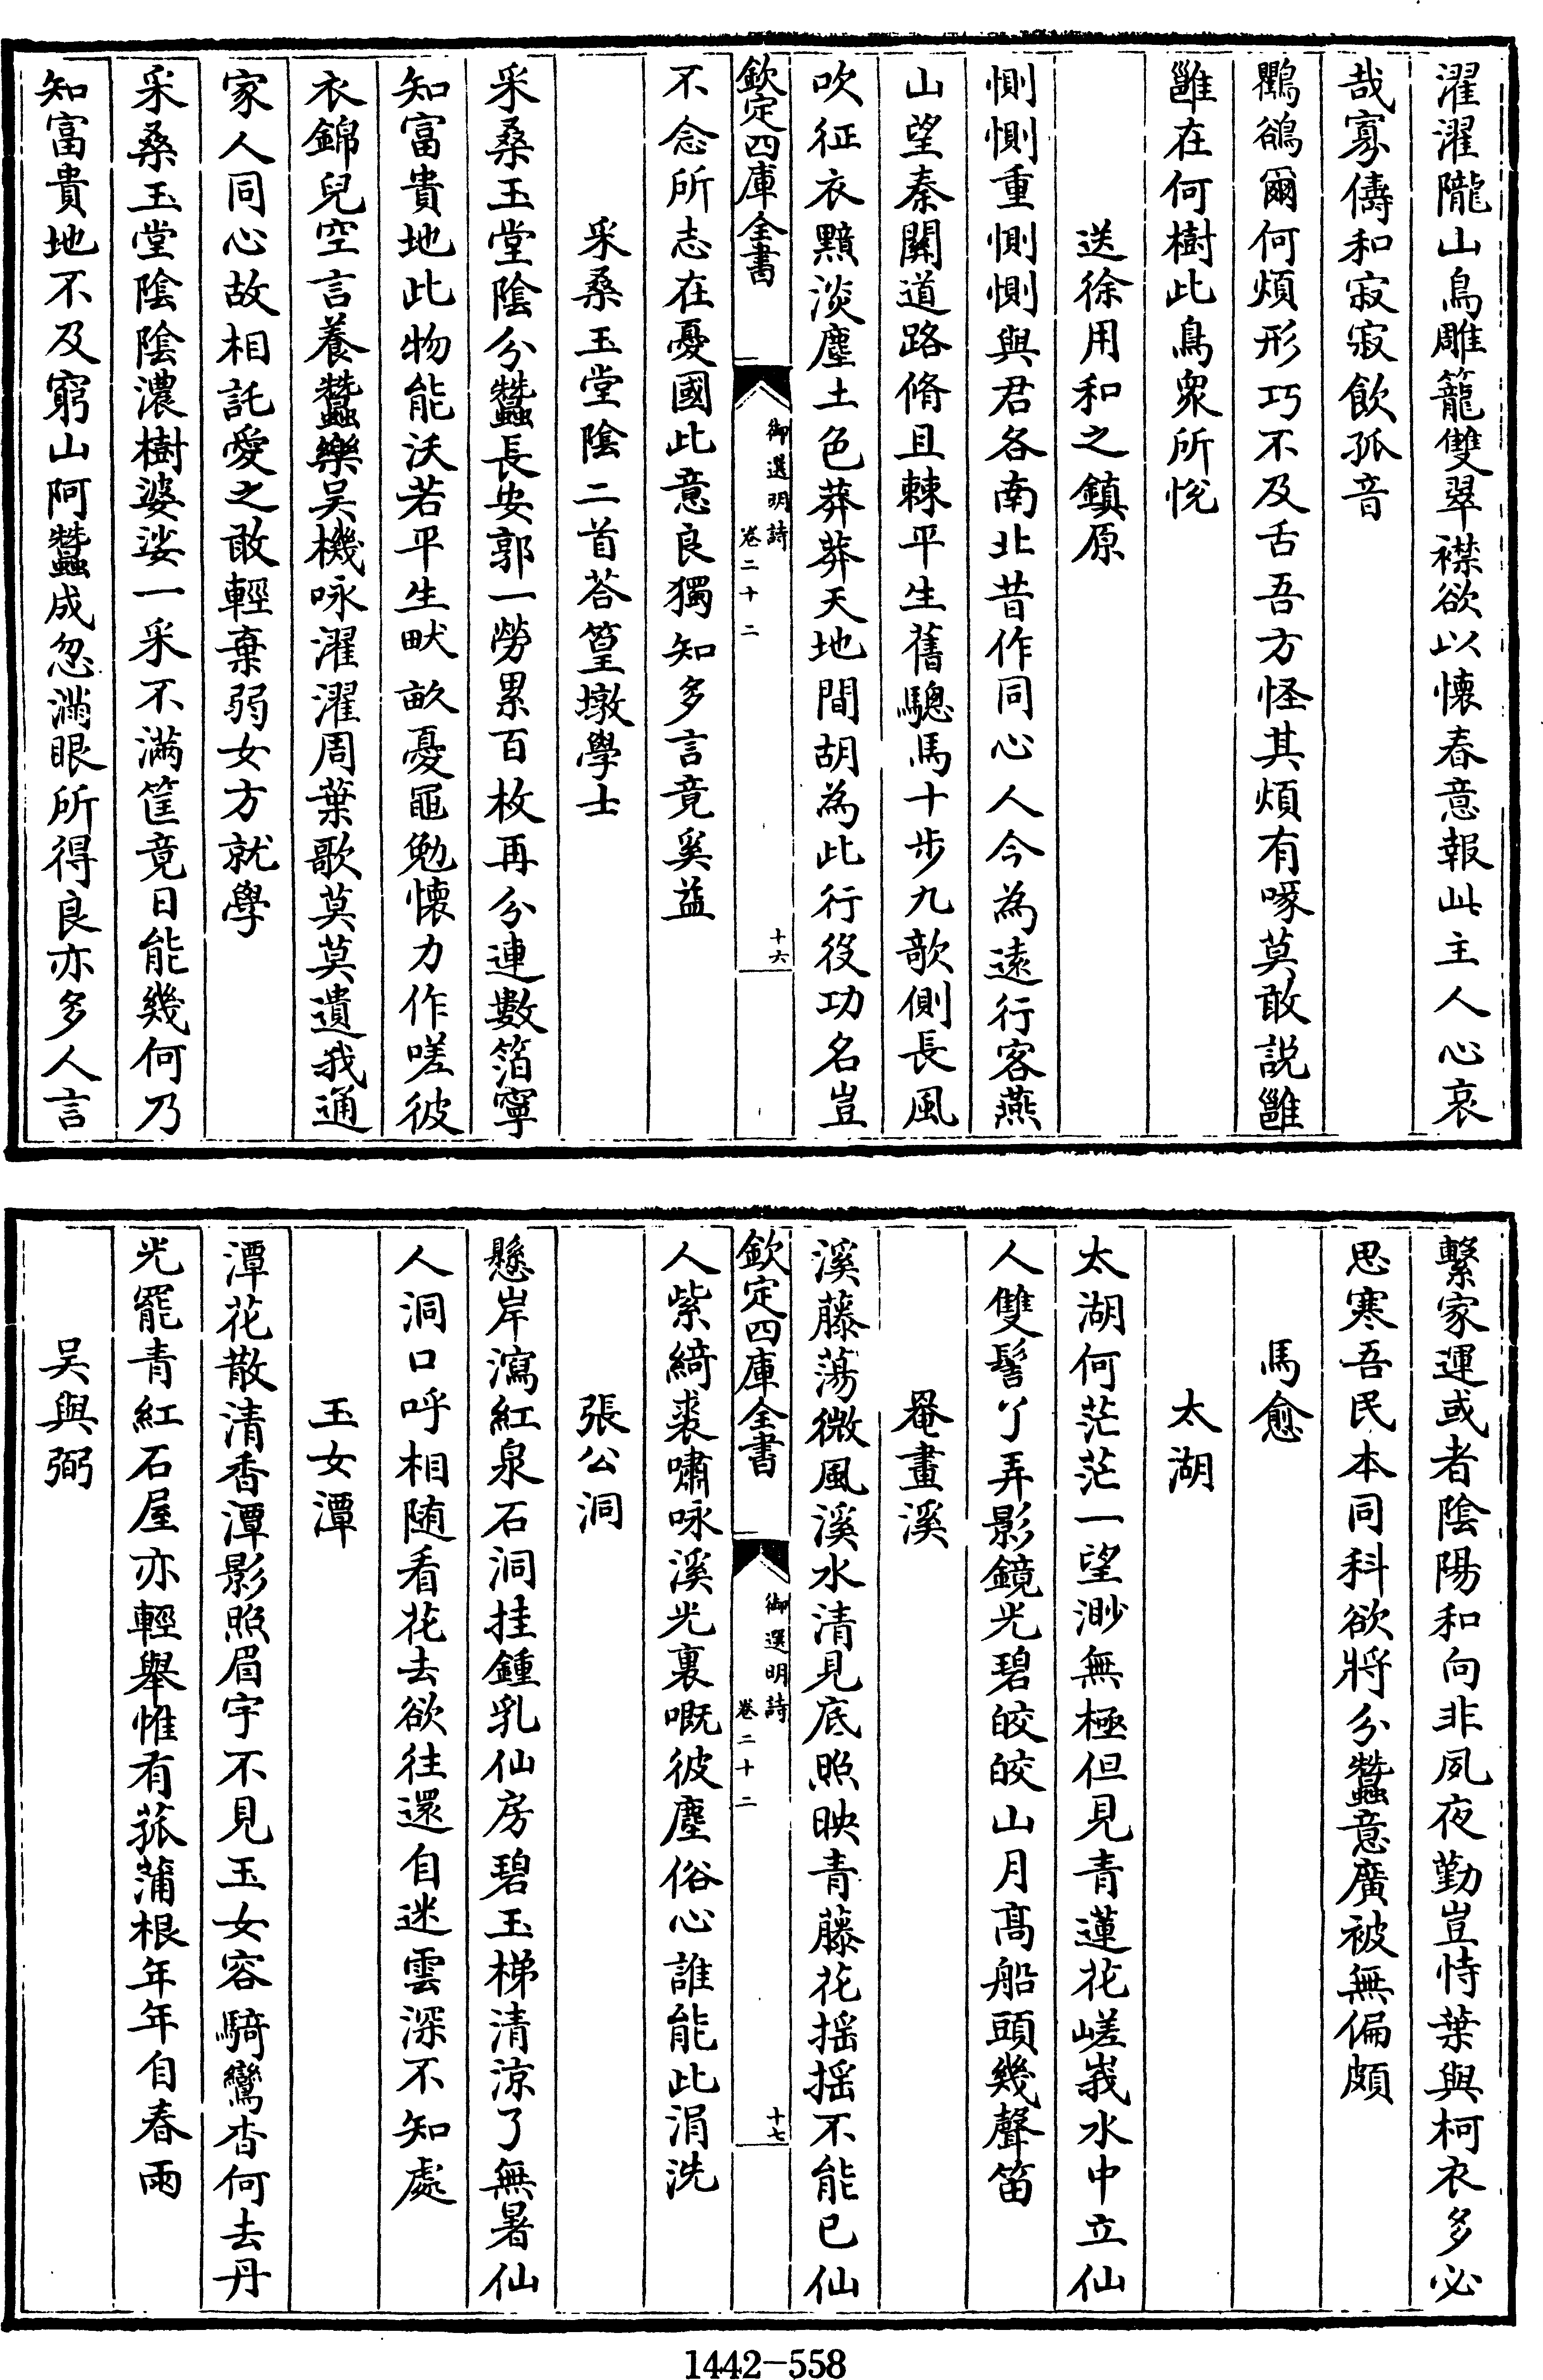 濯濯隴山鳥雕籠雙翠襟欲以懷春意報此主人心哀
哉寡儔和寂寂飲孤音
鸜鵒爾何煩形巧不及舌吾方怪其煩有喙莫敢説雝
雝在何樹此鳥衆所悅
送徐用和之鎮原
惻惻重惻惻與君各南北昔作同心人今為遠行客燕
山望秦關道路脩且棘平生舊驄馬十步九欹側長風
吹征衣黯淡塵土色莽莽天地間胡為此行役功名豈
欽定四庫全書
御選明詩
卷二十二
十六
不念所志在憂國此意良獨知多言竟奚益
采桑玉堂陰二首荅篁墩學士
采桑玉堂陰分蠶長安郭一勞累百枚再分連數箔寧
知富貴地此物能沃若平生畎畝憂黽勉懷力作嗟彼
衣錦兒空言養蠶樂吴機咏濯濯周葉歌莫莫遺我通
家人同心故相託愛之敢輕棄弱女方就學
采桑玉堂陰陰濃樹婆娑一采不滿筐竟日能幾何乃
知富貴地不及窮山阿蠶成忽滿眼所得良亦多人言
繫家運或者陰陽和向非夙夜勤豈恃葉與柯衣多必
思寒吾民本同科欲將分蠶意廣被無偏頗
馬愈
太湖
太湖何茫茫一望渺無極但見青蓮花嵯峩水中立仙
人雙髻丫弄影鏡光碧皎皎山月高船頭幾聲笛
罨畫溪
溪藤蕩微風溪水清見底照映青藤花揺揺不能已仙
人紫綺裘嘯咏溪光裏嘅彼塵俗心誰能此涓洗
欽定四庫全書
御選明詩
卷二十二
十七
張公洞
懸岸瀉紅泉石洞挂鍾乳仙房碧玉梯清涼了無暑仙
人洞口呼相随看花去欲往還自迷雲深不知處
玉女潭
潭花散清香潭影照眉宇不見玉女容騎鸞杳何去丹
光罷青紅石屋亦輕舉惟有菰蒲根年年自春雨
吴與弼
1442-558